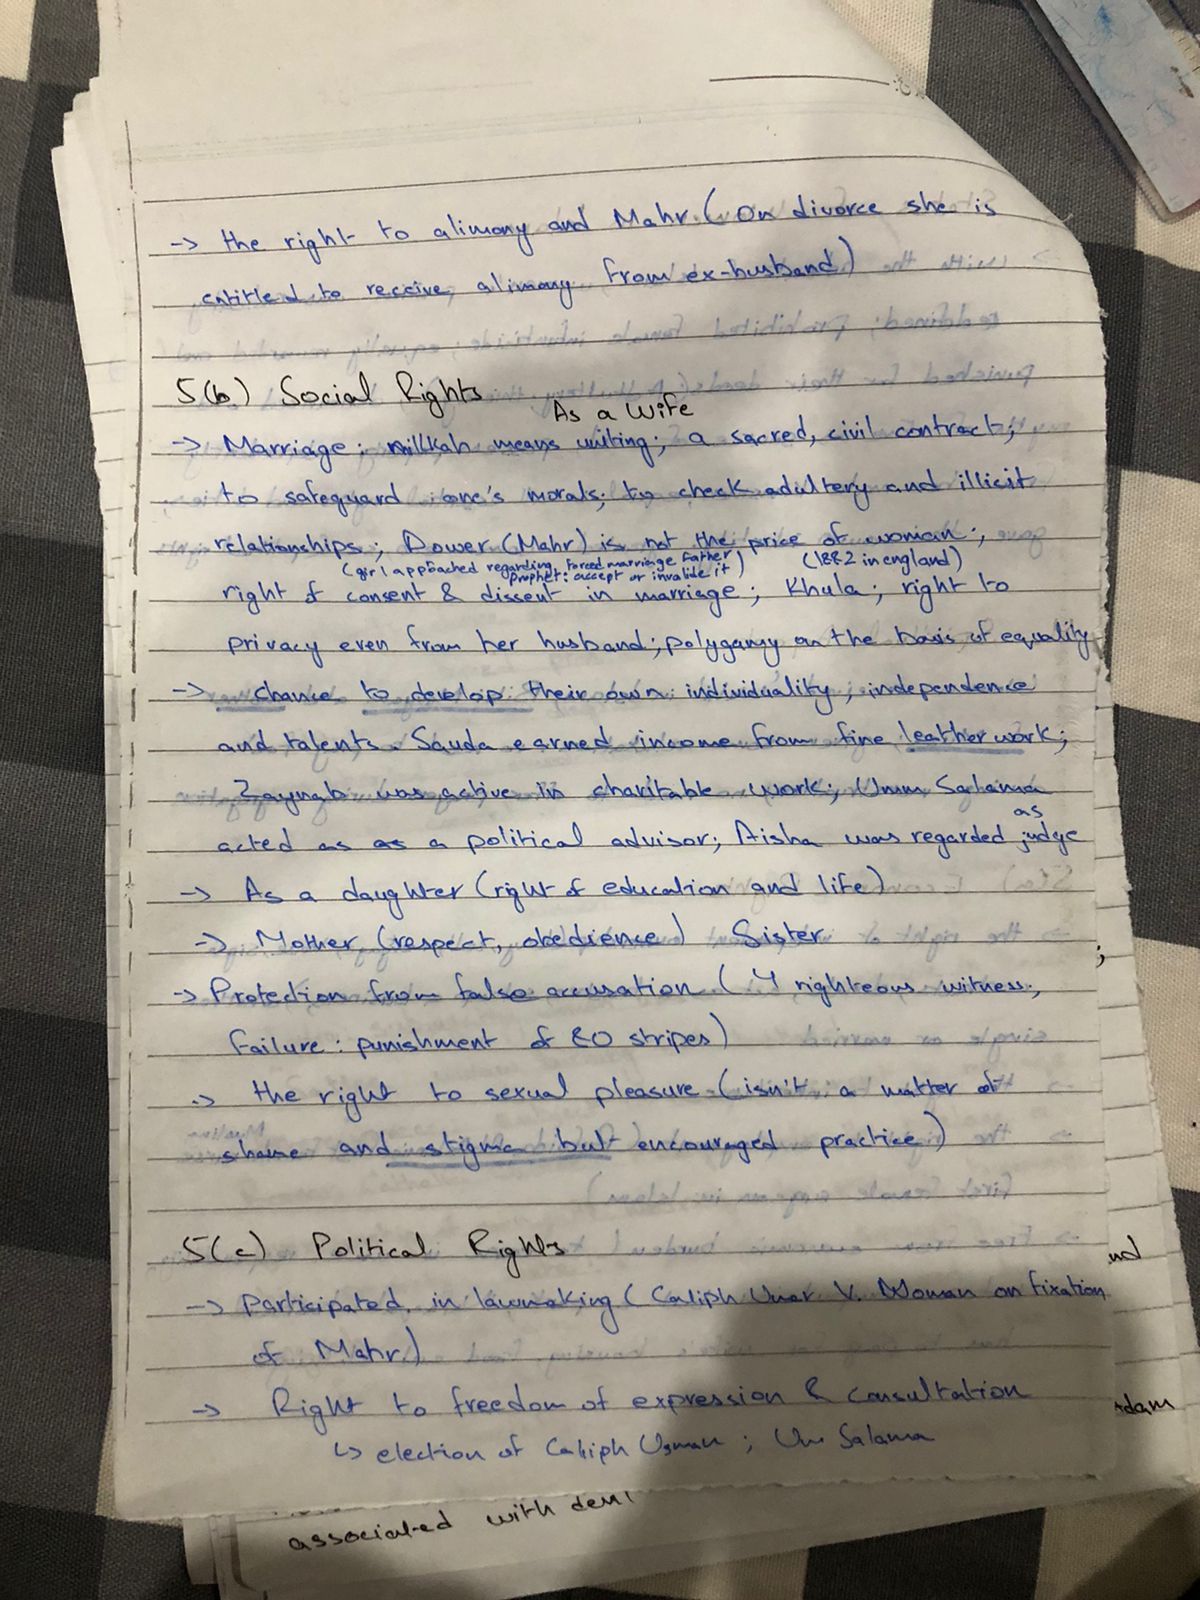 -> the right to alimony and Mahr (On divorce she is
entitled to receive alimony from ex-husband)
5(b) Social Rights
As a Wife
-> Marriage: nikkah means writing; a sacred, civil contract;
to safeguard one's morals; to check adultery and illicit
relationships; Dower (Mahr) is not the price of woman;
(girl appoached regarding forced marriage father (1882 in england)
prophet: accept or invalide it)
right of consent & dissent in marriage; Khula; right to
privacy even from her husband; polygamy on the basis of equality
-> chance to develop their own individuality, independence
and talents. Sauda earned income from fine leather work;
Zaynab was active in charitable work; Umm Salama
as
acted as as a political advisor; Aisha was regarded judge
-> As a daughter (right of education and life)
-> Mother (respect, obedience) Sister
-> Protection from false accusation (4 righteous witness,
failure: punishment of 80 stripes)
-> the right to sexual pleasure (isn't a matter of
shame and stigma but encouraged practice)
5(c) Political Rights
-> Participated in lawmaking (Caliph Umar V. Woman on fixation
of Mahr)
-> Right to freedom of expression & consultation
↳ election of Caliph Usman; Um Salama
Adam
associated with